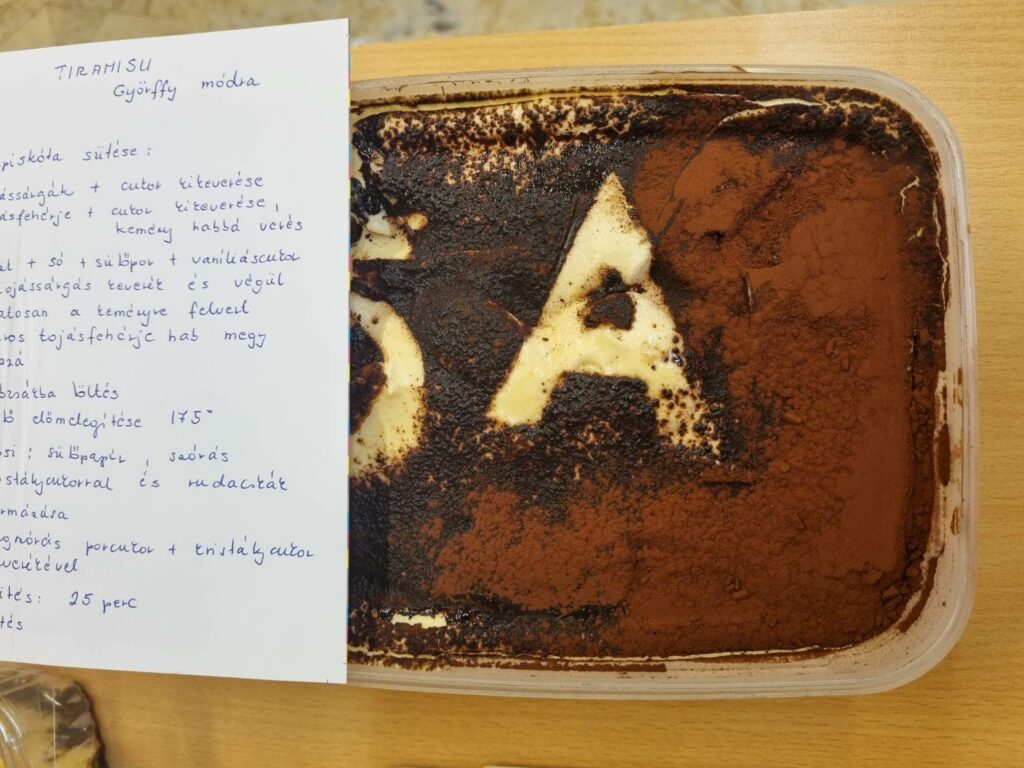 TIRAMISU
Győrffy módra
piskóta sütése :
ássárgák + cukor kikeverése
ásfehérje + cukor kikeverése,
kemény habbá verés
at + só + sütőpor + vaníliáscukor
tojássárgás keverék és végül
atosan a keményre felvert
ros tojásfehérje hab megy
zzá
bzsákba töltés
ő előmelegítése 175°
si : sütőpapír, szórás
istálycukorral és rudacskák
rmázása
gszórás porcukor + kristálycukor
verékével
ités: 25 perc
tés
A